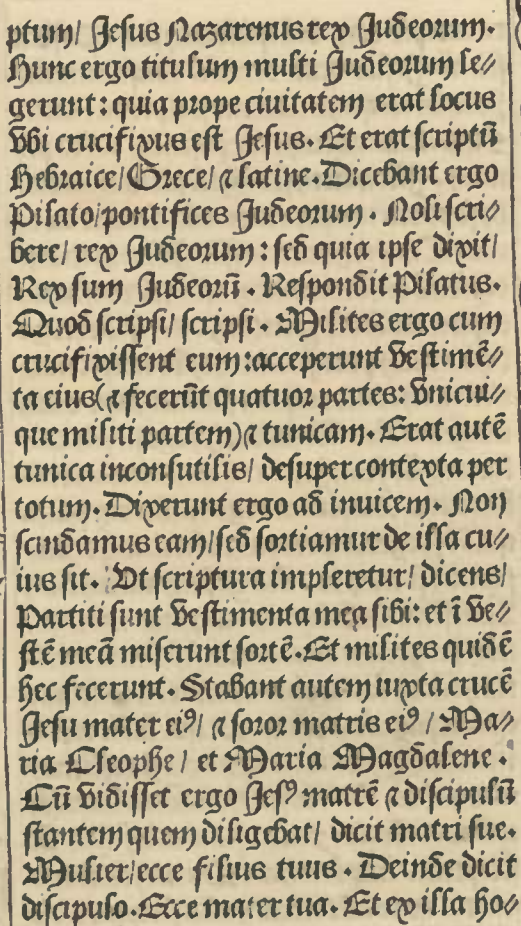 ptum/ Jesus Nazarenus rex Judeorum.
Hunc ergo titulum multi Judeorum le//
gerunt: quia prope ciuitatem erat locus
vbi crucifixus est Jesus. Et erat scriptū
Hebraice/ Grece/ ⁊ latine. Dicebant ergo
Pilato/ pontifices Judeorum. Noli scri//
bere/ rex Judeorum: sed quia ipse dixit/
Rex sum Judeorū. Respondit Pilatus.
Quod scripsi/ scripsi. Milites ergo cum
crucifixissent eum: acceperunt vestimē//
ta eius (⁊ fecerūt quatuor partes: vnicui//
que militi partem) ⁊ tunicam. Erat autē
tunica inconsutilis/ desuper contexta per
totum. Dixerunt ergo ad inuicem. Non
scindamus eam/ sed sortiamur de illa cu//
ius sit. Vt scriptura impleretur/ dicens/
Partiti sunt vestimenta mea sibi: et ī ve//
stē meā miserunt sortē. Et milites quidē
hec fecerunt. Stabant autem iuxta crucē
Jesu mater eiꝰ/ ⁊ soror matris eiꝰ/ Ma//
ria Cleophe/ et Maria Magdalene.
Cū vidisset ergo Jesꝰ matrē ⁊ discipulū
stantem quem diligebat/ dicit matri sue.
Mulier/ ecce filius tuus. Deinde dicit
discipulo. Ecce mater tua. Et ex illa ho//